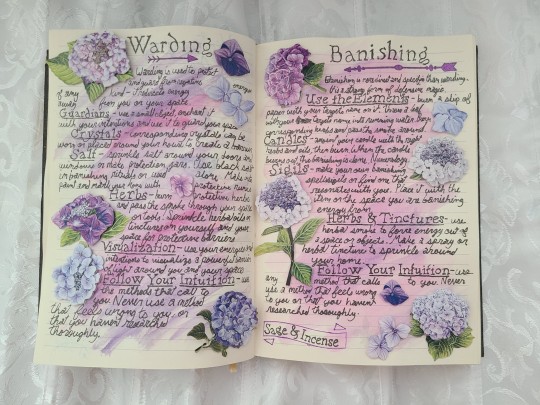 Warding
Warding is used to protect
and guard from negative
of any kind - dedicate energy
away from you or your space
Guardians - use a small object, enchant it
with your intentions and use it to guard your space
Crystals - corresponding crystals can be
worn or placed around your home to create a barrier
Salt - sprinkle salt around your doors or
windows or mop
in banishing rituals or used alone.
paint and mark your home with protective
Herbs - burn protective herbs
and pass the smoke through your space
or tools. Sprinkle herbal
tinctures on yourself and your
space for protective barriers
Visualization - use your energy and
intentions to visualize a powerful
of light around you and your space
Follow Your Intuition - use
the methods that call to
you. Never use a method
that feels wrong to you, or
that you haven't researched
thoroughly.
Banishing
Banishing is more direct and specific than warding.
It is a strong form of defensive magic.
Use the Elements - burn a strip of
paper with your target name on it, throw a leaf
with your target name into running water, burn
corresponding herbs and pass the smoke around
Candles - anoint your candle with the right
herbs and oils, then burn. When the candle
burns out the banishing is done.
Sigils - make your own banishing
spells/sigils or find one that
resonates with you. Place it with the
item or the space you are banishing
energy from
Herbs & Tinctures - use
herbal smoke to force energy out of
a space or objects. Make a spray or
herbal tincture to sprinkle around
your home.
Follow Your Intuition - use
any method that calls to you. Never
use a method that feels wrong
to you or that you haven't
researched thoroughly.
Sage & Incense